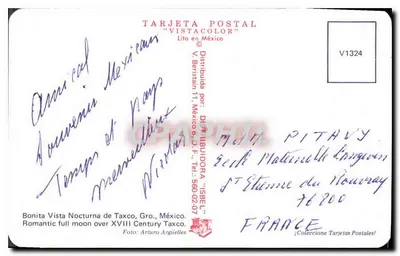 TARJETA POSTAL
"VISTACOLOR"
Lito en México
V1324
Amical
Souvenir Mexicain
Temps et Pays
merveilleux
Nicolas
Distribuida por: DISTRIBUIDORA "ISBEL"
V. Berristain 11, México 8, D.F., Tel: 560-02-07
M & M PITAVY
Ecole Maternelle Langevin
St Etienne du Rouvray
76800
FRANCE
Bonita Vista Nocturna de Taxco, Gro., México.
Romantic full moon over XVIII Century Taxco.
Foto: Arturo Argüelles
¡Coleccione Tarjetas Postales!